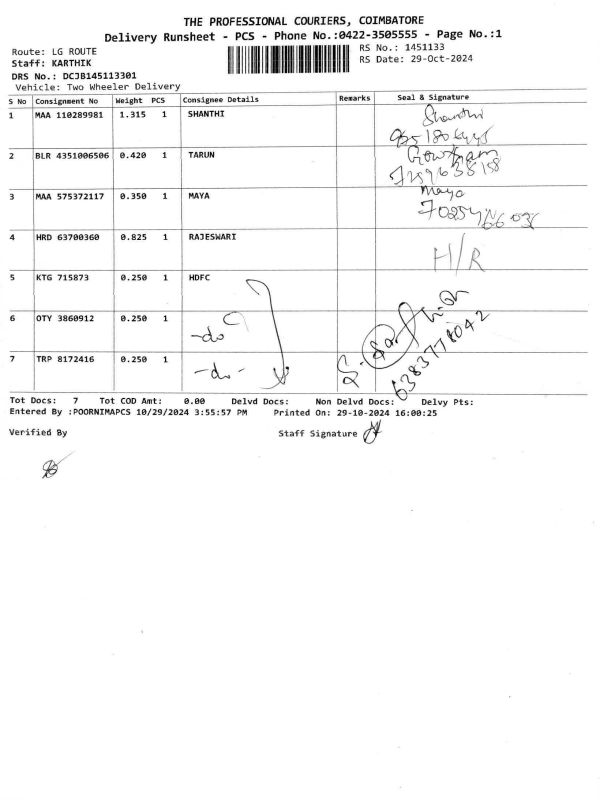 THE PROFESSIONAL COURIERS, COIMBATORE
Delivery Runsheet - PCS - Phone No.:0422-3505555 - Page No.:1
Route: LG ROUTE
RS No.: 1451133
Staff: KARTHIK
RS Date: 29-Oct-2024
DRS No.: DCJB145113301
Vehicle: Two Wheeler Delivery
S No Consignment No Weight PCS Consignee Details Remarks Seal & Signature
1 MAA 110289981 1.315 1 SHANTHI Shanthi
2 BLR 4351006506 0.420 1 TARUN Gowtham
3 MAA 575372117 0.350 1 MAYA Maya
4 HRD 63700360 0.825 1 RAJESWARI H/R
5 KTG 715873 0.250 1 HDFC
6 OTY 3860912 0.250 1 -do-
7 TRP 8172416 0.250 1 -do-
6383778042
Tot Docs: 7 Tot COD Amt: 0.00 Delvd Docs: Non Delvd Docs: Delvy Pts:
Entered By :POORNIMAPCS 10/29/2024 3:55:57 PM Printed On: 29-10-2024 16:00:25
Verified By Staff Signature